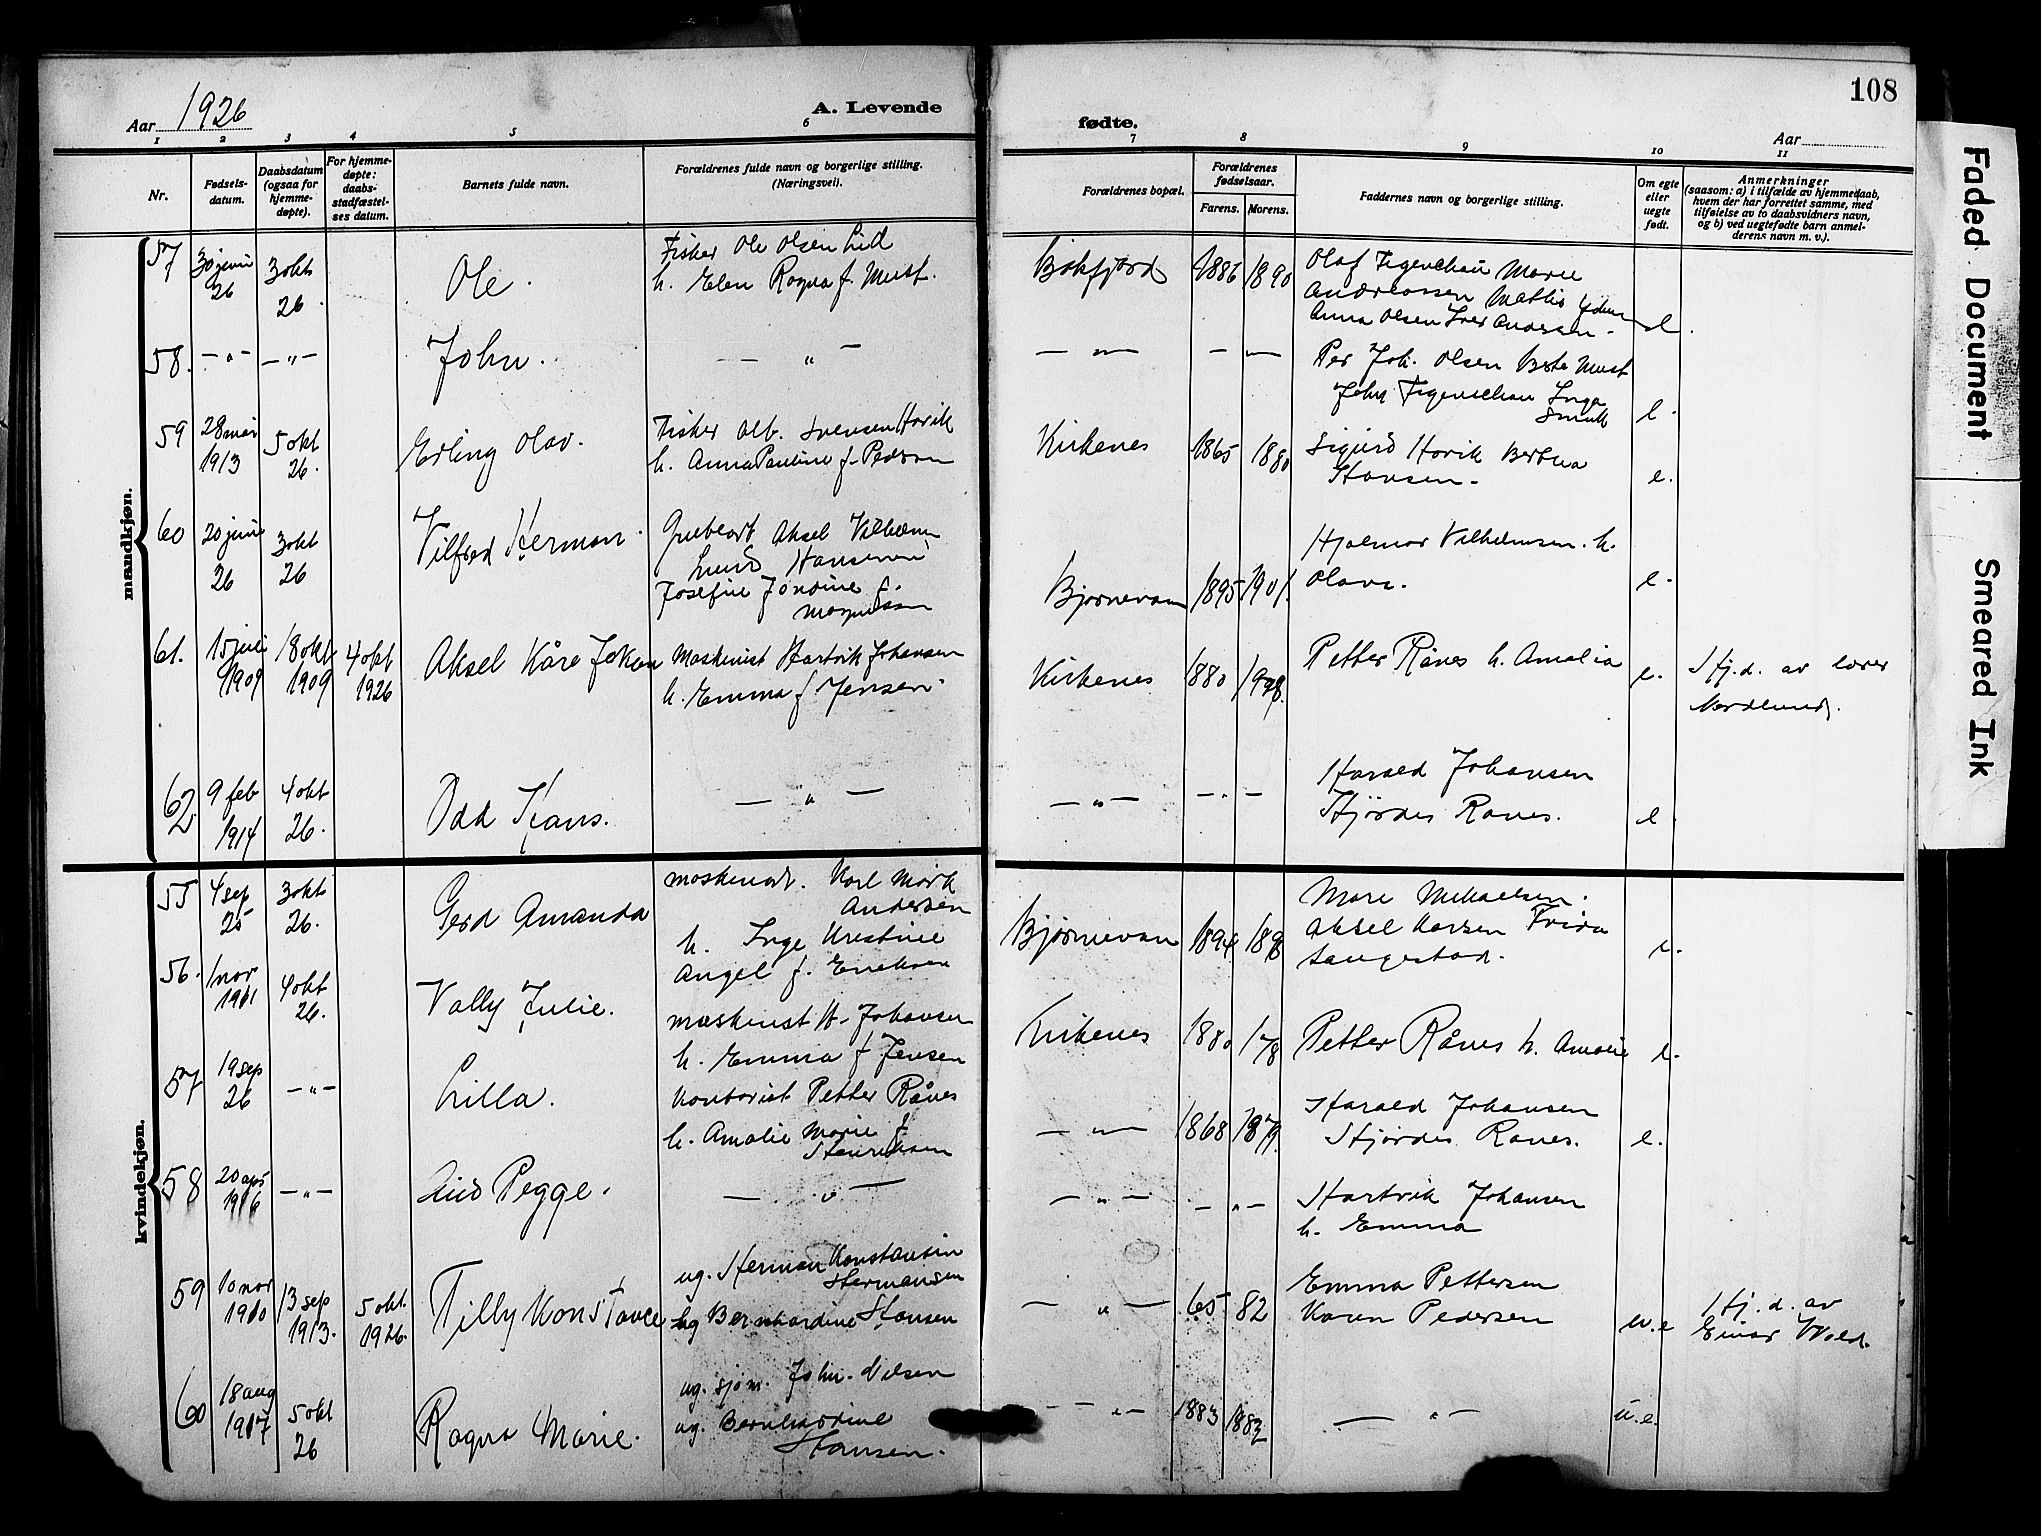 108
Aar 1926
A. Levende
fødte.
Aar
1 2 3 4 5 6 7 8 9 10 11
Nr.
Fødsels-
datum.
Daabsdatum
(ogsaa for
hjemme-
døpte).
For hjemme-
døpte:
daabs-
stadfæstel-
ses datum.
Barnets fulde navn.
Forældrenes fulde navn og borgerlige stilling.
(Næringsvei).
Forældrenes bopæl.
Forældrenes
fødselsaar.
Farens. Morens.
Faddernes navn og borgerlige stilling.
Om egte
eller
uegte
født.
Anmerkninger
(saasom: a) i tilfælde av hjemmedaab,
hvem der har forrettet samme, med
tilføielse av to daabsvidners navn,
og b) ved uegtefødte barn anmel-
derens navn m. v.).
mandkjøn.
57 30 juni 26 3 okt 26. Ole.
Fisker Ole Olsen Lid
h. Elen Ragna f. Must.
Bøkfjord 1886 1890
Olaf Figenschau Marie
Andreassen Mathis
Anna Olsen Iver Andersen - e.
58. — " — — " — John. — " —
— " — — " —
Per Joh. Olsen Berte Must
John Figenschau Inga
e.
59 28 mai 1913 5 okt 26. Erling Olav.
Fisker Alb. Svensen Havik
h. Anna Pauline f. Pedersen
Kirkenes 1865 1880
Sigurd Havik
Hansen - e.
60 20 juni 26 3 okt 26 Vilfred Herman.
Grubearb Aksel Vilhelm
Lund Hansen
Josefine Jordine f.
Magnussen
Bjørnevatn 1895 1901.
Hjalmar Vilhelmsen. h.
Olava. e.
61. 15 juni 1909 18 okt 1909 4 okt 1926 Aksel Kåre Johan
Maskinist Hartvik Johansen
h. Emma f. Jensen.
Kirkenes 1880
Petter Rånes h. Amalia e.
Hj.d. av lærer
Nordlund.
62. 9 feb 1914 4 okt 26. Odd Hans. — " —
— " — — " —
Harald Johansen
Hjørdis Ranes. e.
kvindekjøn.
55 4 sep 25 3 okt 26. Gerd Amanda
maskinarb. Karl Mark
Andersen
h. Inga Kristine
Angel f. Eriksen
Bjørnevatn 1894 1898
Mare Mikaelsen.
Aksel Karsen Frida
Langestad. e.
56. 1 nov 1911 4 okt 26. Vally Julie.
maskinist H. Johansen
h. Emma f Jensen
Kirkenes 1880 178
Petter Rånes h. Amalie e.
57 19 sep 26 — " — Lilla.
Kontorist Petter Rånes
h. Amalie Marie f
Henriksen
— " — 1868 1879.
Harald Johansen
Hjørdis Ranes. e.
58 20 apr 1916 — " — Aud Pegge. — " —
— " — — " —
Hartvik Johansen
h. Emma
59 10 nov 1910 13 sep 1913. 5 okt. 1926. Tilly Konstance
ug. Herman Konstantin
Hermansen
ug Bernhardine Hansen
— " — 65 82
Emma Pettersen
Karen Pedersen u.e
Hj.d. av
Einar Wold.
60 18 aug 1917 5 okt 26 Ragna Marie.
ug. sjøm. John. Nilsen
ug. Bernhardine
Hansen.
— " — 1883 1882 — " — u.e.
Faded Document
Smeared Ink